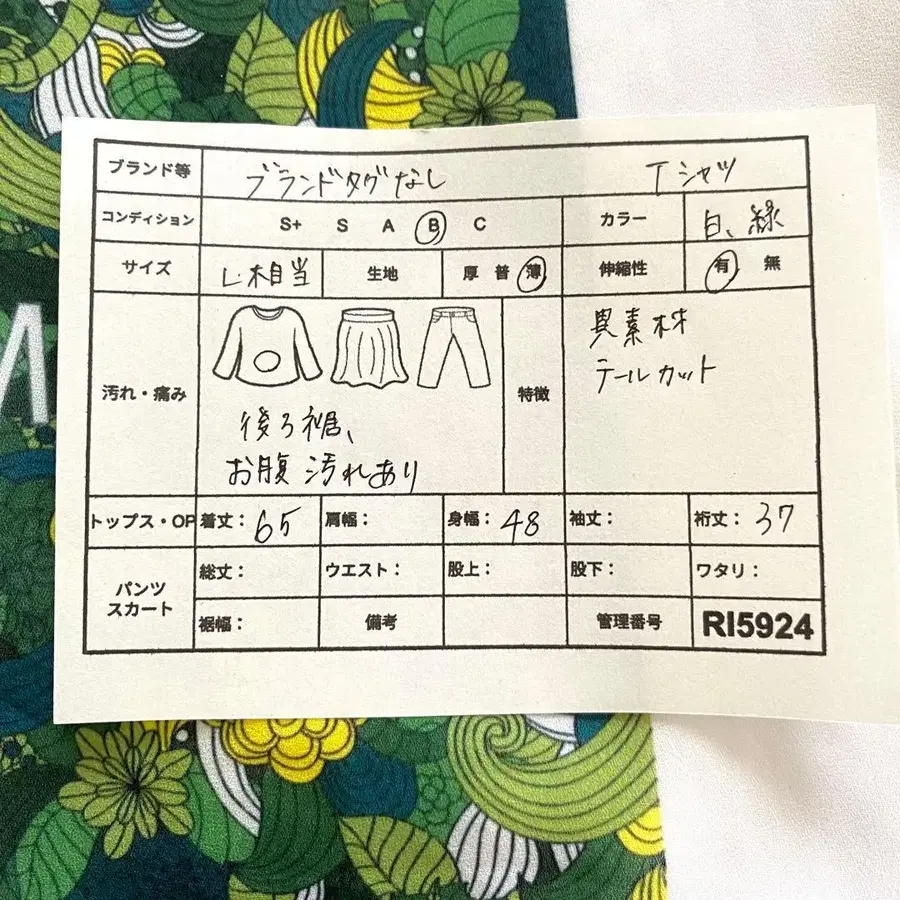 ブランド等 ブランドタグなし Tシャツ
コンディション S+ S A B C カラー 白、緑
サイズ L相当 生地 厚 普 薄 伸縮性 有 無
汚れ・痛み 後ろ裾、
お腹汚れあり
特徴 異素材
テールカット
トップス・OP 着丈:65 肩幅: 身幅:48 袖丈: 裄丈:37
パンツ
スカート
総丈: ウエスト: 股上: 股下: ワタリ:
裾幅: 備考 管理番号 RI5924
M